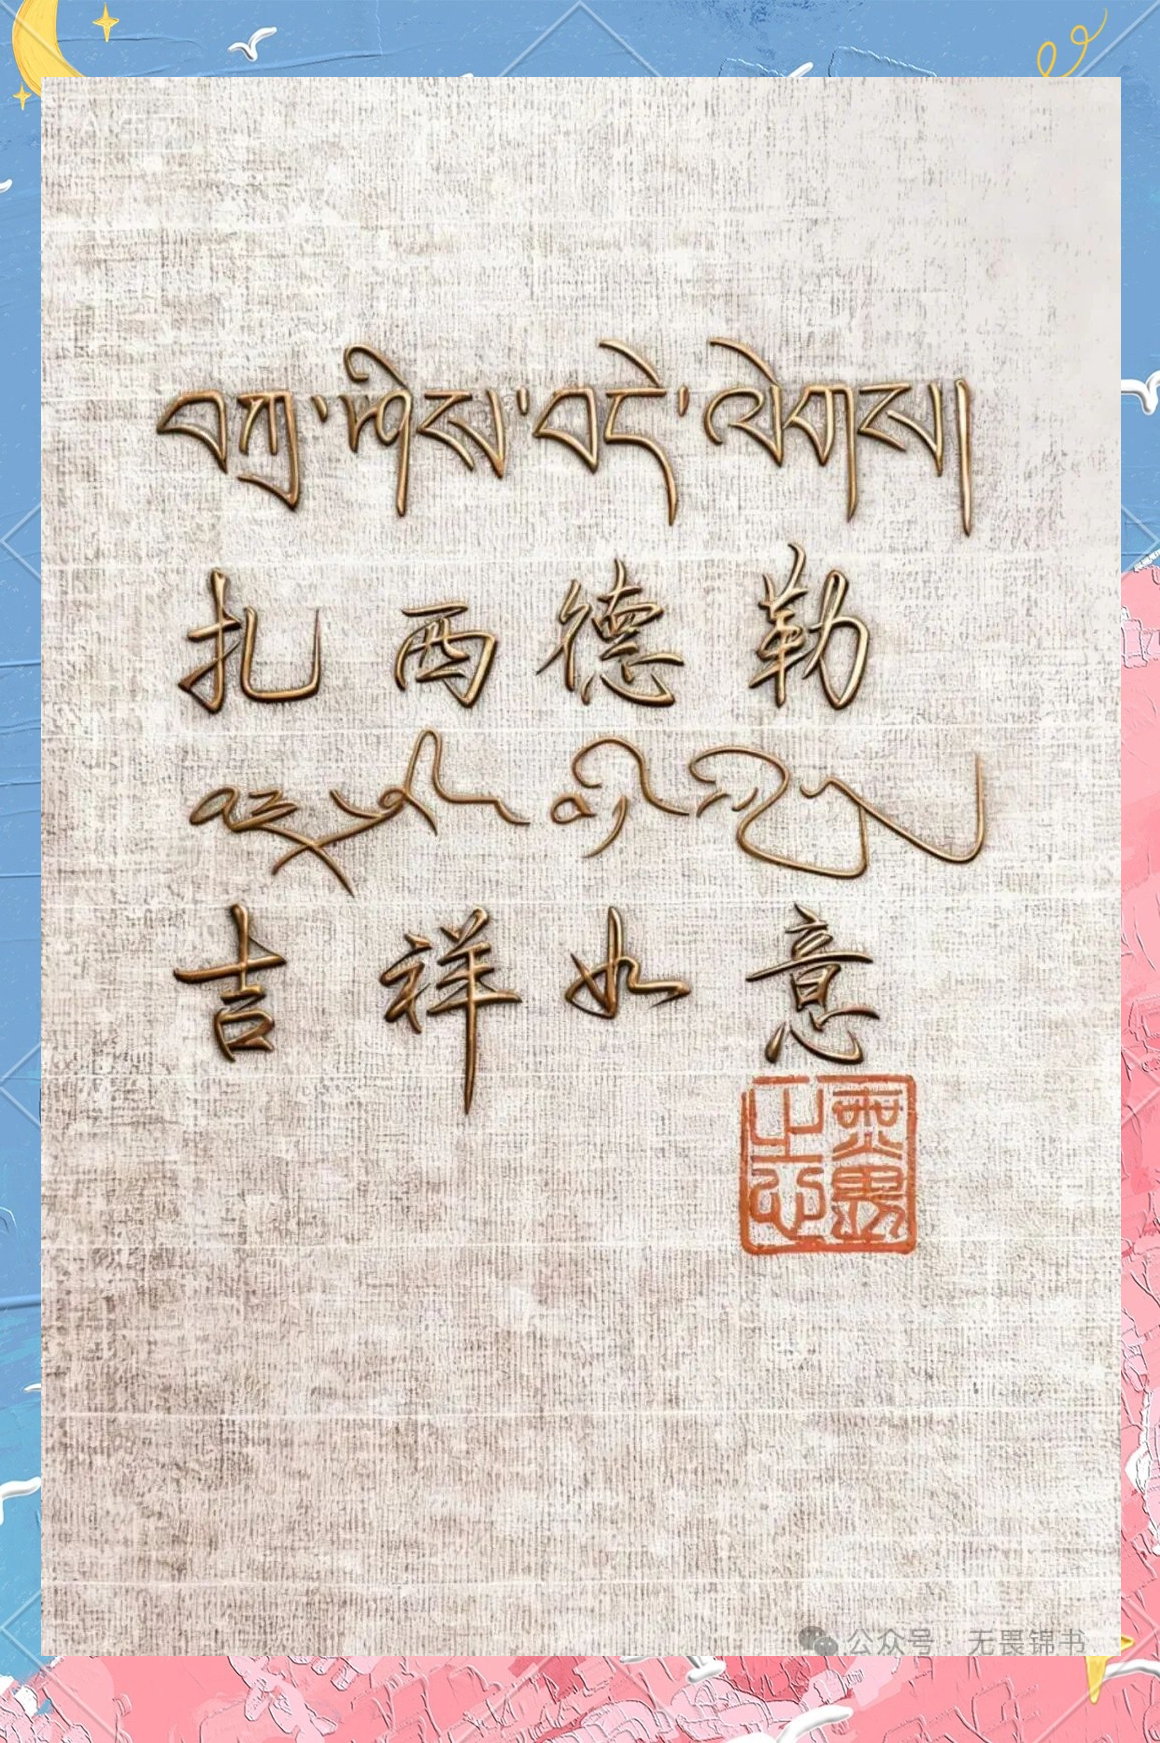 བཀྲ་ཤིས་བདེ་ལེགས།
扎西德勒
吉祥如意
無畏之心
公众号 · 无畏锦书